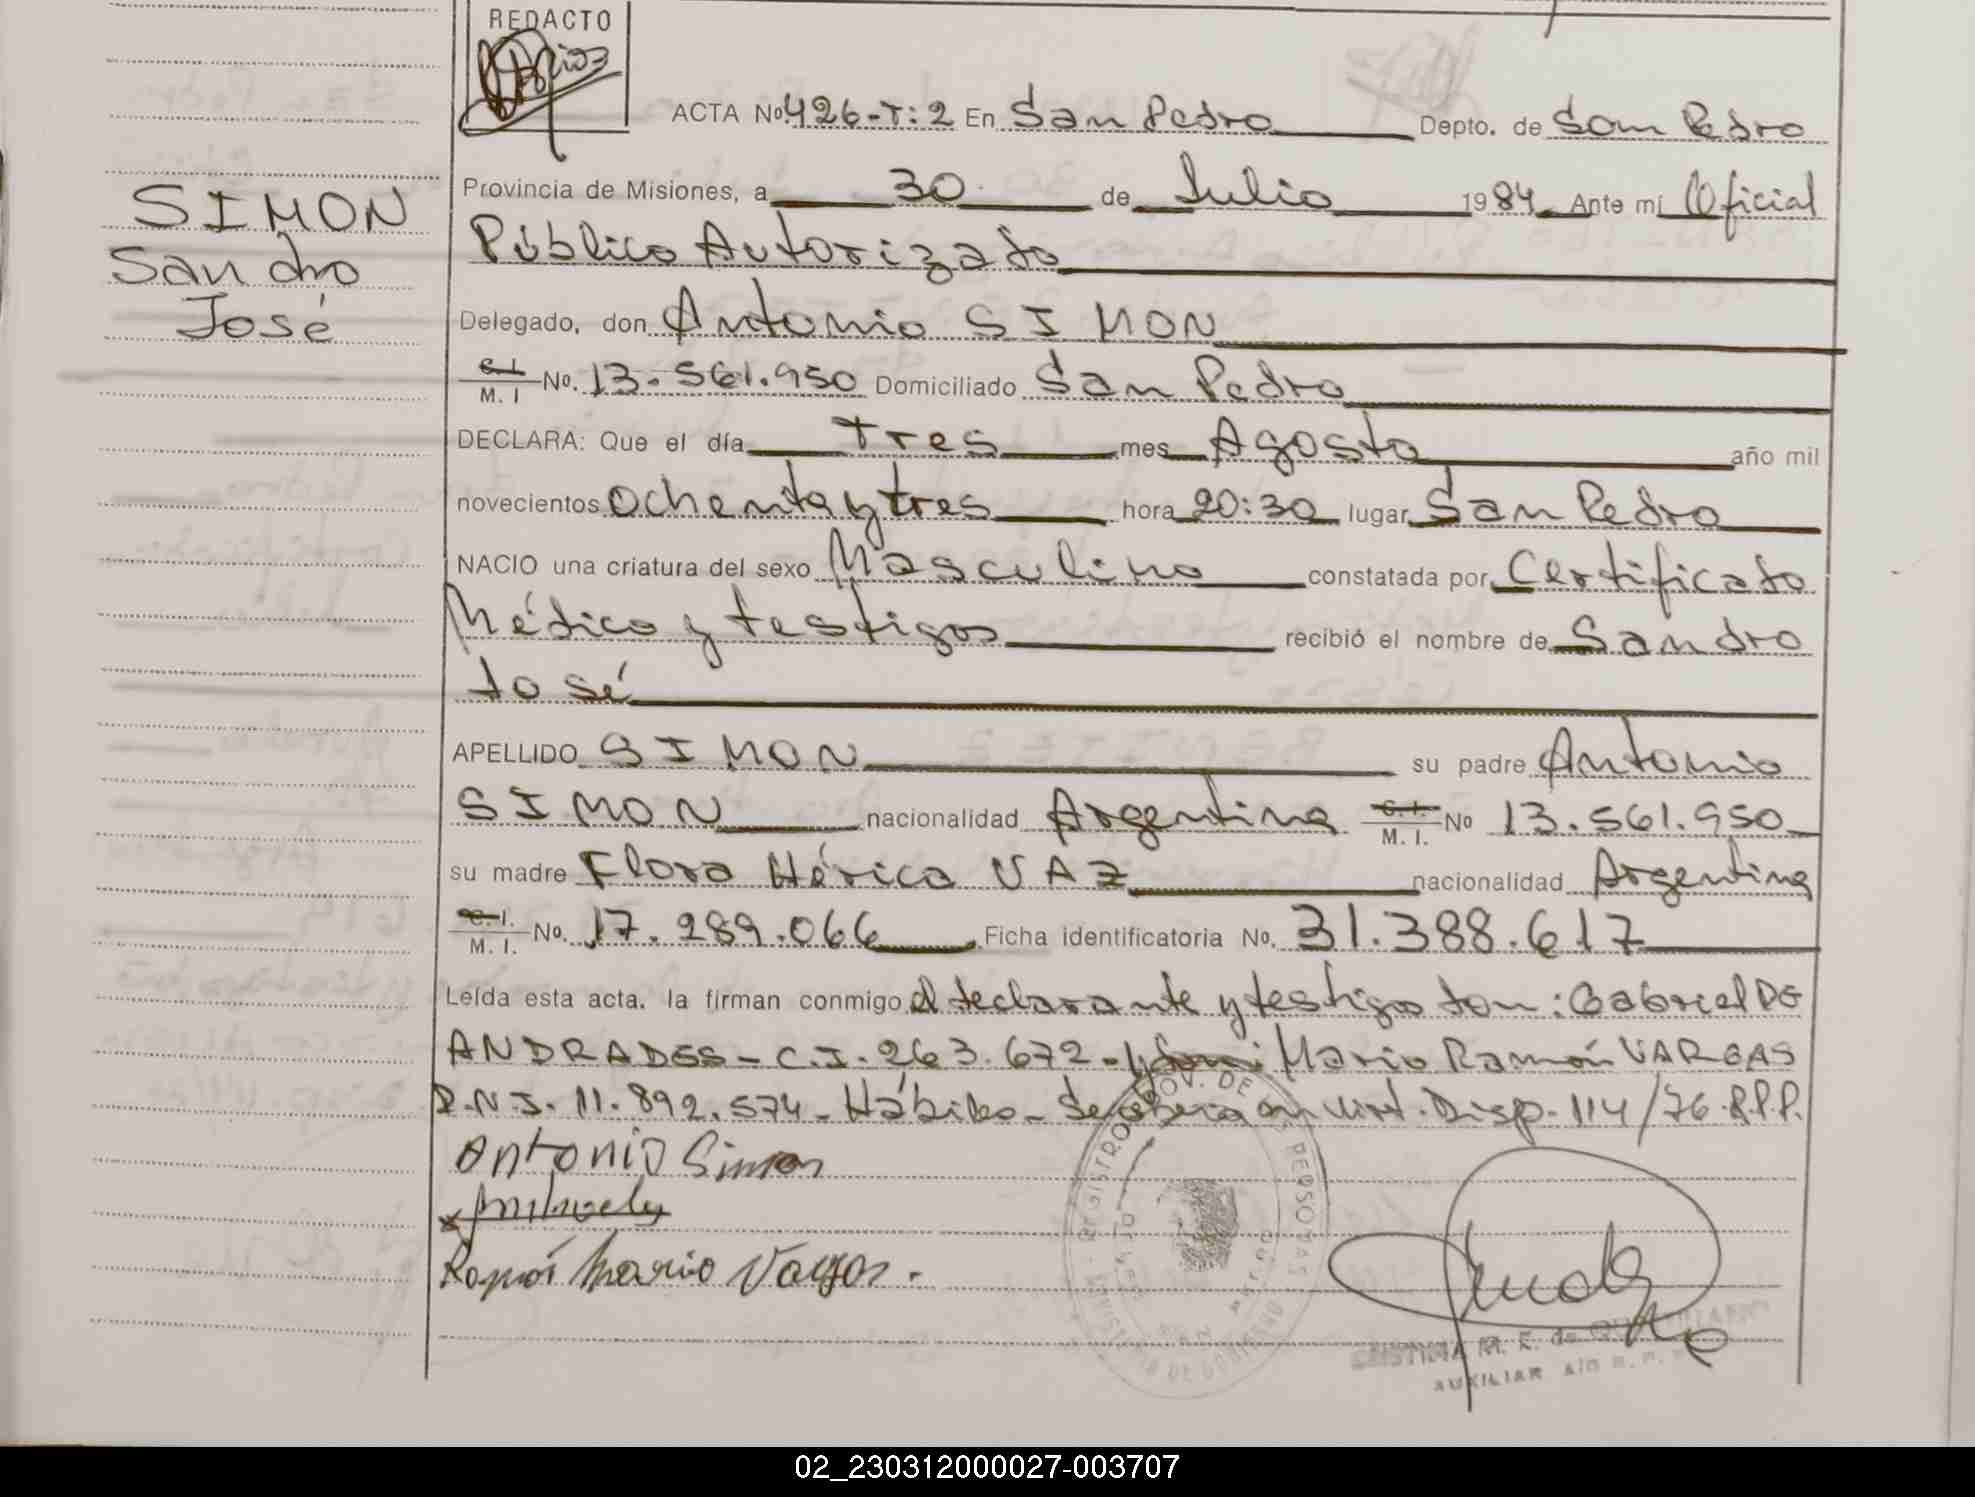 REDACTO
ACTA Nº 426-T:2 En San Pedro Depto. de San Pedro
Provincia de Misiones, a 30 de Julio 1984 Ante mí Oficial
Público Autorizado
SIMON
Sandro
José
Delegado, don Antonio SIMON
C.I. M. I Nº. 13.561.950 Domiciliado San Pedro
DECLARA: Que el día tres mes Agosto año mil
novecientos ochenta y tres hora 20:30 lugar San Pedro
NACIO una criatura del sexo Masculino constatada por Certificado
Médico y testigos recibió el nombre de Sandro
José
APELLIDO SIMON su padre Antonio
SIMON nacionalidad Argentina C.I. M. I. Nº 13.561.950
su madre Flora Hérica VAZ nacionalidad Argentina
C.I. M. I. Nº. 17.289.066 Ficha identificatoria No. 31.388.617
Leída esta acta. la firman conmigo el declarante y testigo don: Gabriel DE
ANDRADES - C.I. 263.672 - y Mario Ramón VARGAS
D.N.I. 11.892.574 - Hábiles - Disp. 114/76 R.P.P.
Antonio Simon
Ramón Mario Vargas.
AUXILIAR
02_230312000027-003707